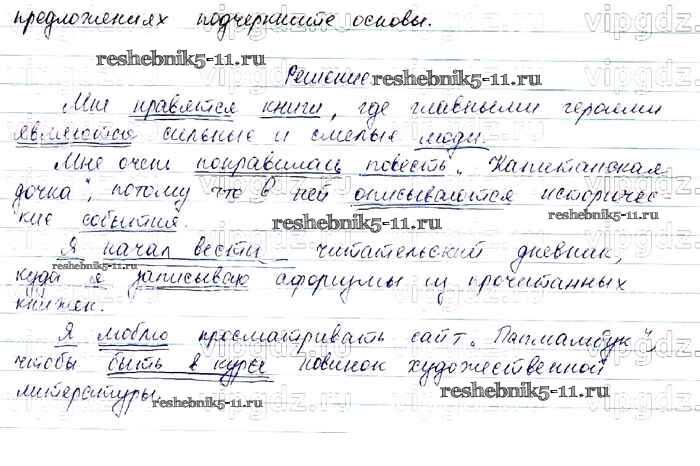 предложениях подчеркните основы.
reshebnik5-11.ru
Решение reshebnik5-11.ru
Мне нравятся книги, где главными героями
являются сильные и смелые люди.
Мне очень понравилась повесть „Капитанская
дочка", потому что в ней описываются историчес-
кие события. reshebnik5-11.ru
Я начал вести читательский дневник,
reshebnik5-11.ru
куда я записываю афоризмы из прочитанных
книжек.
Я люблю просматривать сайт „Папмамбук",
чтобы быть в курсе новинок художественной
литературы. reshebnik5-11.ru
reshebnik5-11.ru
vipgdz.ru